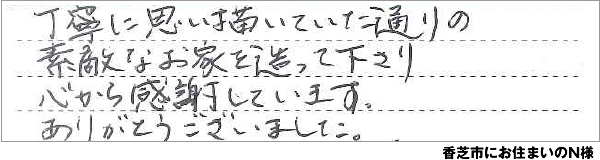 丁寧に思い描いていた通りの
素敵なお家を造って下さり
心から感謝しています。
ありがとうございました。
香芝市にお住まいのN様